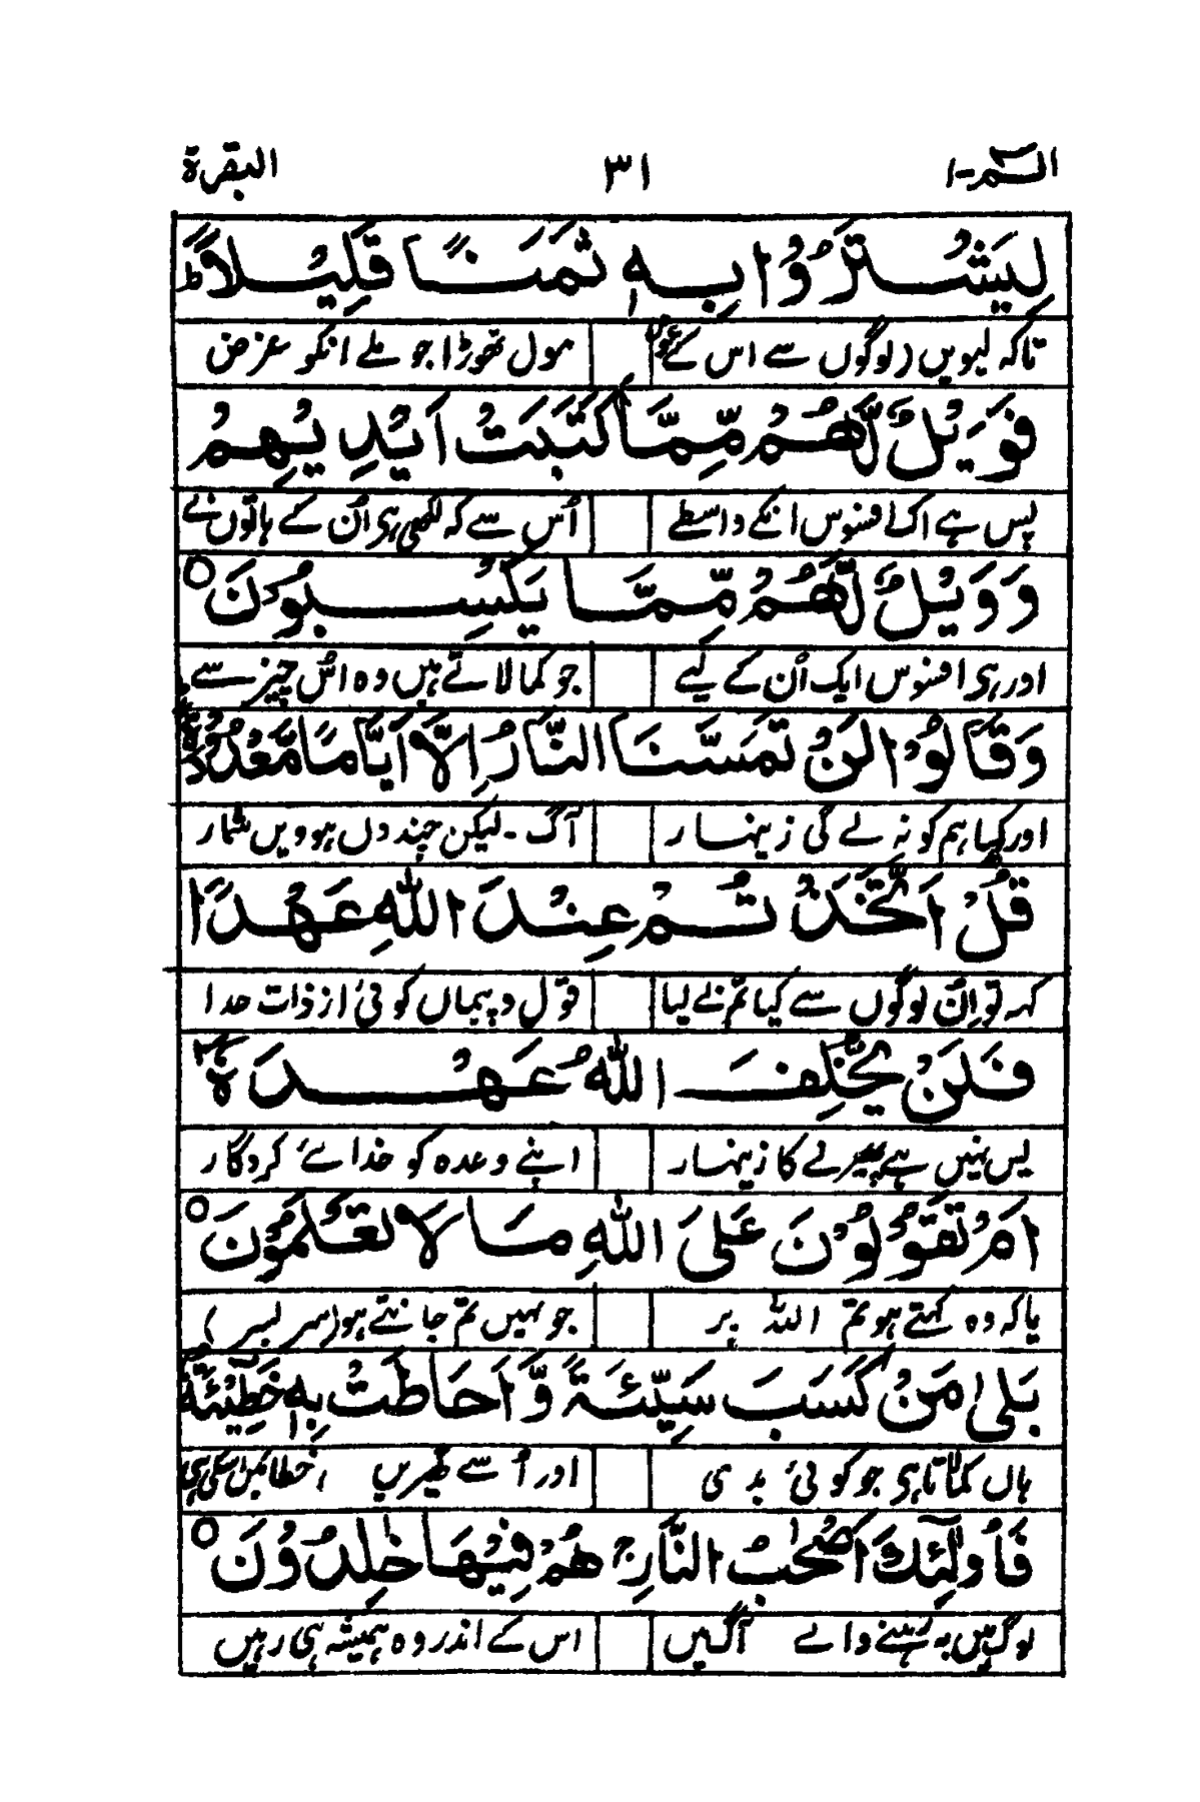 الٓمّٓ-۱ ۳۱ البقرة
لِيَشْتَرُوْا بِهٖ ثَمَنًا قَلِيْلًا ؕ
تاکہ لیویں (لوگوں سے اس کے عوض مول تھوڑا جو ملے انکو غرض
فَوَيْلٌ لَّهُمْ مِّمَّا كَتَبَتْ اَيْدِيْهِمْ
پس ہے اک افسوس انکے واسطے اُس سے کہ لکھی ہی اُن کے ہاتوں نے
وَوَيْلٌ لَّهُمْ مِّمَّا يَكْسِبُوْنَ ○
اور ہی افسوس ایک اُن کے لیے جو کما لاتے ہیں وہ اس چیز سے
وَقَالُوْا لَنْ تَمَسَّنَا النَّارُ اِلَّاۤ اَيَّامًا مَّعْدُوْدَةً ؕ
اور کہا ہم کو نہ لے گی زینہار آگ - لیکن چند دل ہوویں شمار
قُلْ اَتَّخَذْتُمْ عِنْدَ اللّٰهِ عَهْدًا
کہہ تو اِن لوگوں سے کیا تم نے لیا قول و پیماں کوئی از ذات خدا
فَلَنْ يُّخْلِفَ اللّٰهُ عَهْدَهٗۤ
پس نہیں ہے پھیرنے کا زینہار اپنے وعدہ کو خدائے کردگار
اَمْ تَقُوْلُوْنَ عَلَى اللّٰهِ مَا لَا تَعْلَمُوْنَ ○
یا کہ وہ کہتے ہو تم اللہ پر جو نہیں تم جانتے ہو (سر بسر)
بَلٰى مَنْ كَسَبَ سَيِّئَةً وَّاَحَاطَتْ بِهٖ خَطِيْٓئَتُهٗ
ہاں کماتا ہی جو کوئی بدی اور اُسے گھیریں خطائیں اسکی ہی
فَاُولٰٓئِكَ اَصْحٰبُ النَّارِ ۚ هُمْ فِيْهَا خٰلِدُوْنَ ○
لوگ ہیں یہ رہنے والے آگ میں اس کے اندر وہ ہمیشہ ہی رہیں